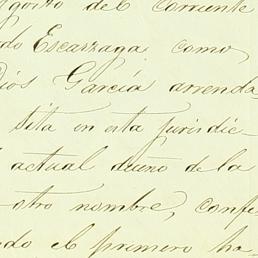 Agosto del corriente
do Escarzaga como
Dios García arrenda
sita en esta jurisdic
actual dueño de la
otro nombre, confi
ndo el primero ha